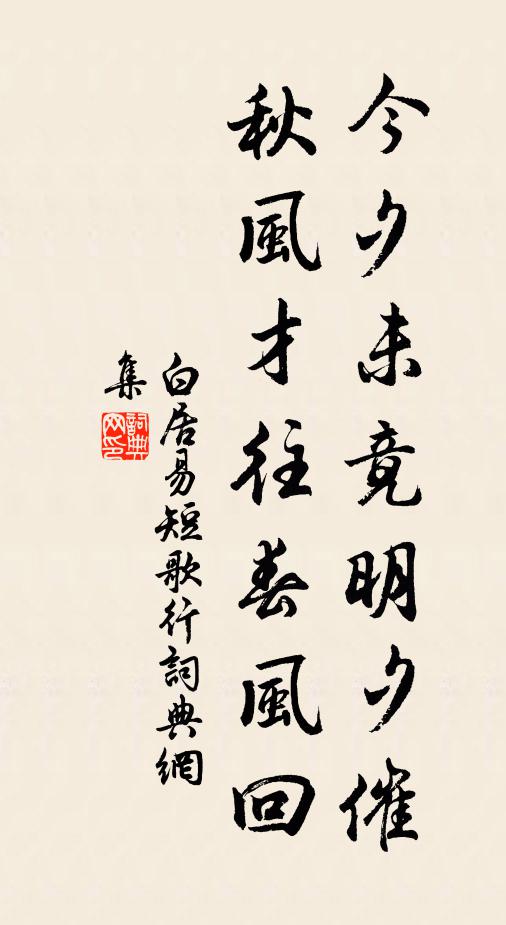 今夕未竟明夕催
秋風才往春風回
白居易短歌行詞典網
集
詞典網印